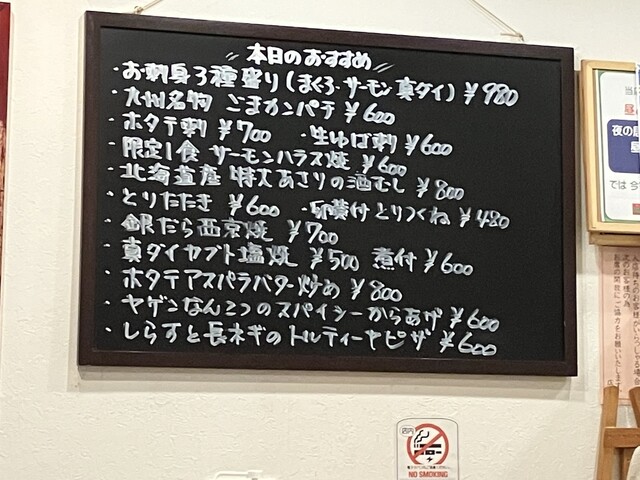 本日のおすすめ
・お刺身3種盛り(まぐろ・サーモン 真ダイ) ¥980
・九州名物 ごまカンパチ ¥600
・ホタテ刺 ¥700 ・生ゆば刺 ¥600
・限定1食 サーモンハラス焼 ¥600
・北海道産 特大あさりの酒むし ¥800
・とりたたき ¥600 ・卵黄付とりつくね ¥480
・銀だら西京焼 ¥700
・真ダイカブト塩焼 ¥500 煮付 ¥600
・ホタテアスパラバター炒め ¥800
・ヤゲンなんこつのスパイシーからあげ ¥600
・しらすと長ネギのトルティーヤピザ ¥600
夜の
では
店内
NO SMOKING